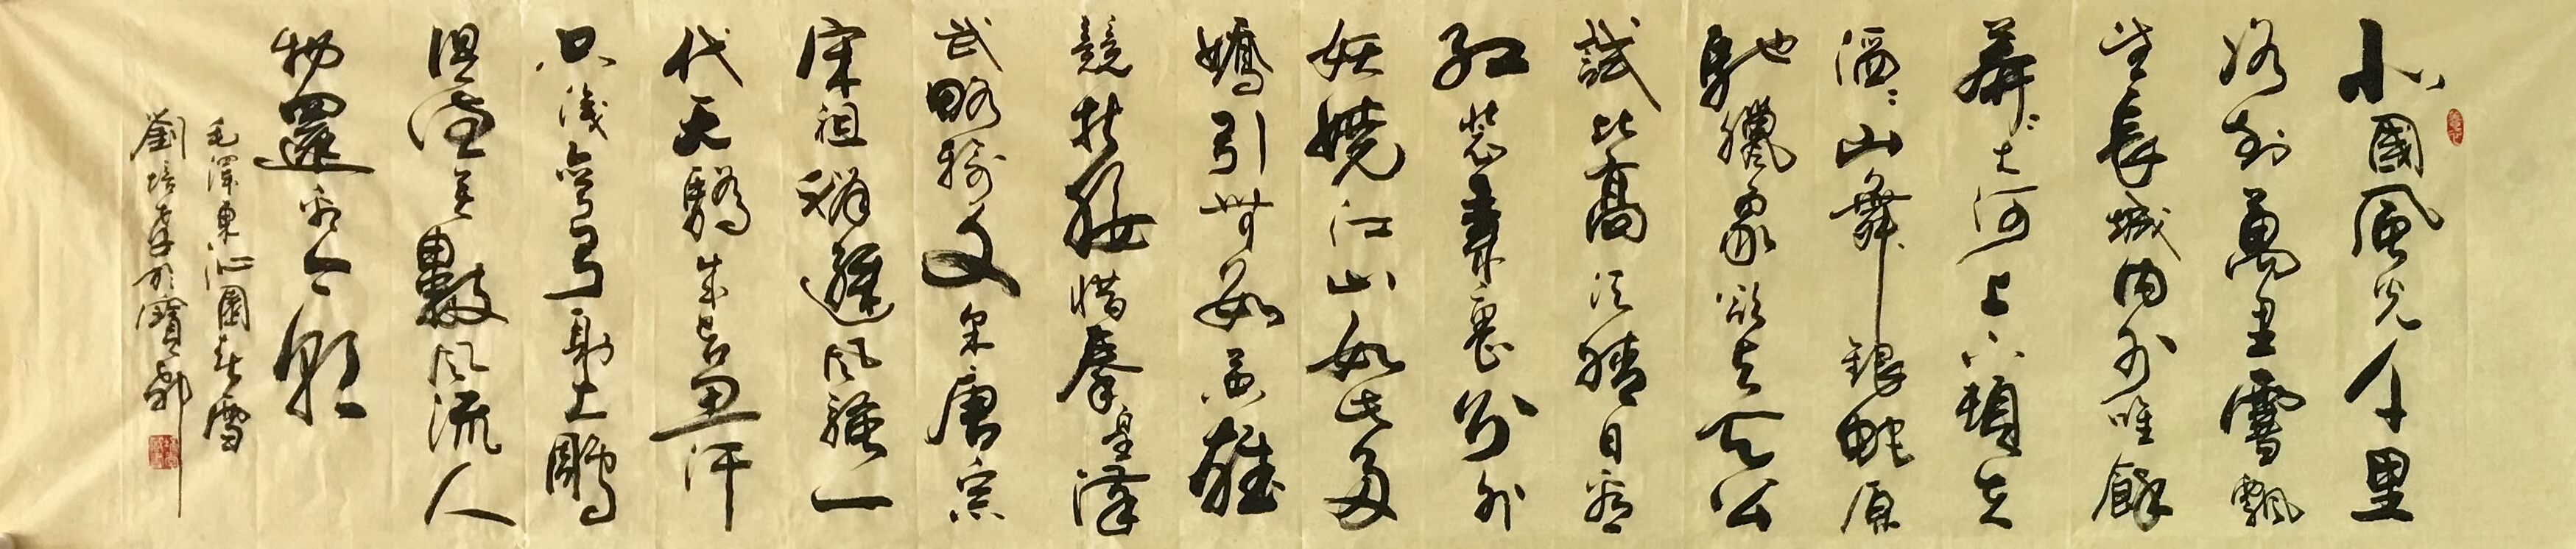 北國風光千里
冰封萬里雪飄
望長城內外唯餘
莽莽大河上下頓失
滔滔山舞銀蛇原
馳臘象欲與天公
試比高須晴日看
紅裝素裹分外
妖嬈江山如此多
嬌引無數英雄
競折腰惜秦皇漢
武略輸文采唐宗
宋祖稍遜風騷一
代天驕成吉思汗
只識彎弓射大鵰
俱往矣數風流人
物還看今朝
毛澤東沁園春雪
劉培孝於寶